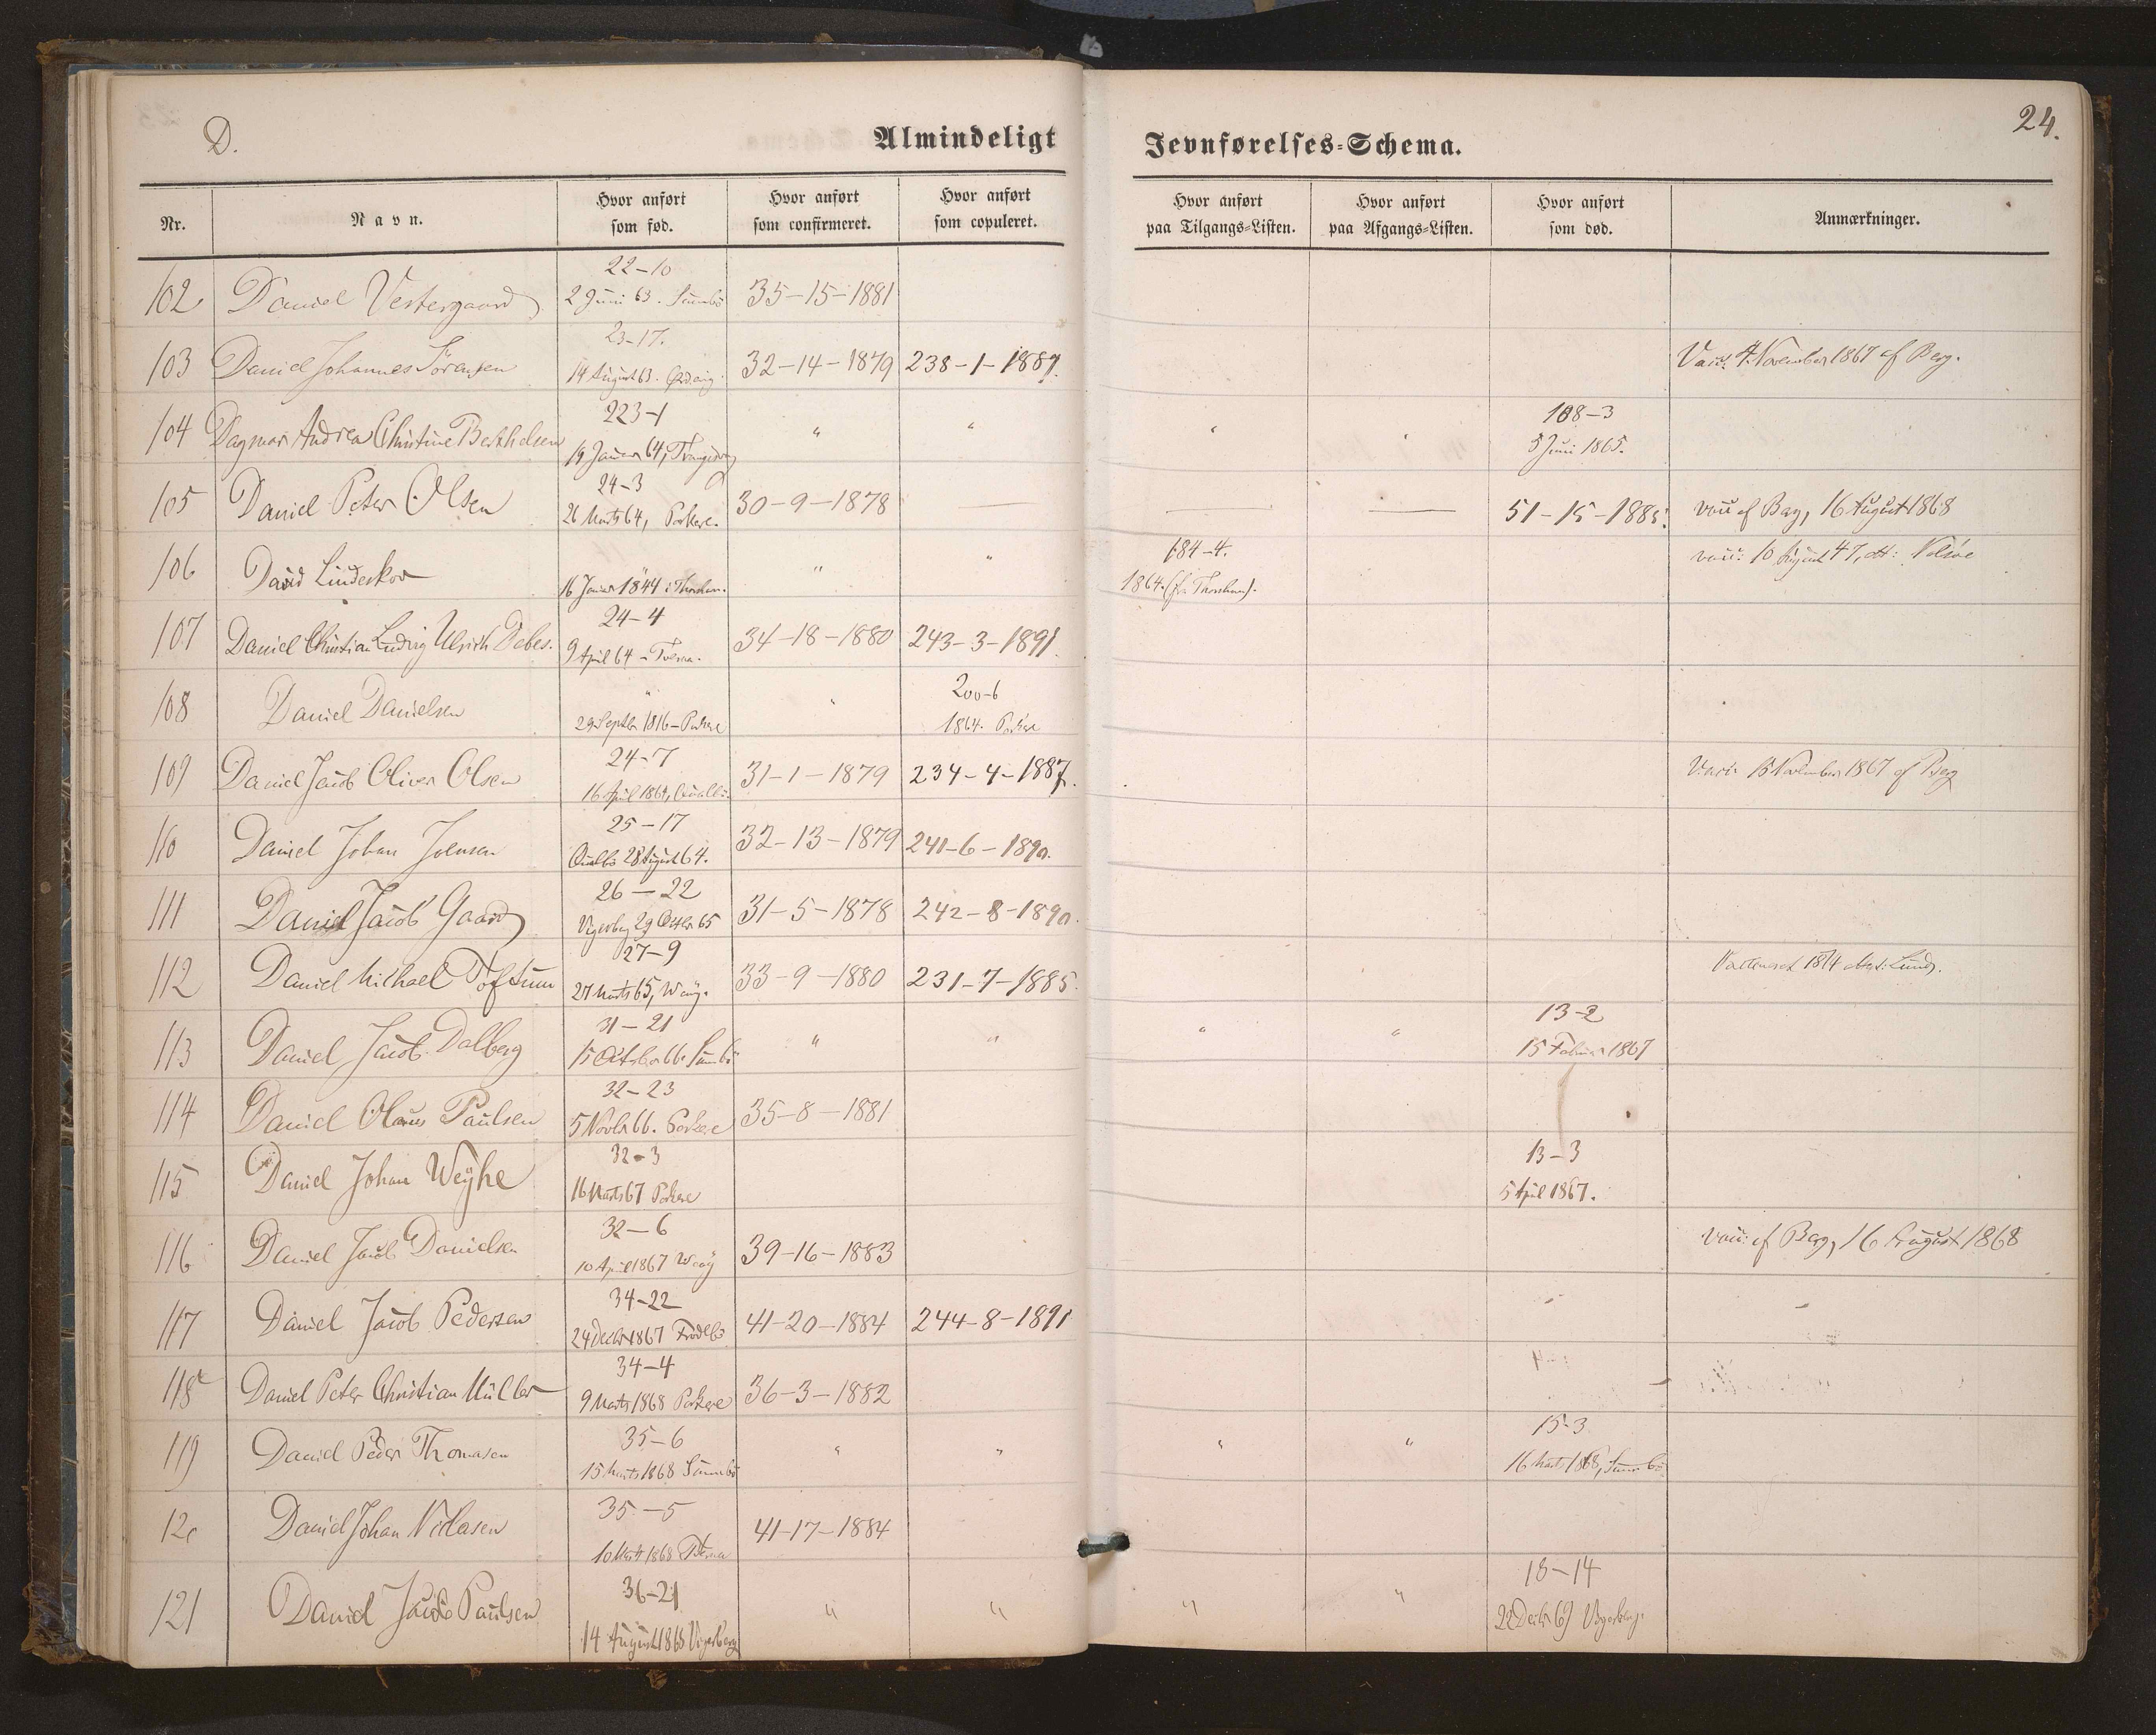 D.
Almindeligt Jevnførelses-Schema.
24.
Nr. Navn. Hvor anført som fød. Hvor anført som confirmeret. Hvor anført som copuleret. Hvor anført paa Tilgangs-Listen. Hvor anført paa Afgangs-Listen. Hvor anført som død. Anmærkninger.
22-10
102 Daniel Vestergaard 2 Juni 63. Sumbö 35-15-1881
23-17.
103 Daniel Johannes Sörensen 14 August 63. 32-14-1879 238-1-1889. Vacc: 4. November 1867 af Berg.
223-1 108-3
104 Dagmar Andrea Christine Berthelsen " " " " 5 Juni 1865.
19 Januar 64, Trangisvaag
24-3
105 Daniel Peter Olsen 26 Marts 64, Porkere. 30-9-1878 — — — 51-15-1885. vacc af Berg, 16 August 1868
184-4.
106 David Linderskov 16 Januar 1844 i Thorshavn. " " 1864. (fra Thorshavn). vacc: 10 August 47, att:
24-4
107 Daniel Christian Ludvig Ulrich Debes. 9 April 64 - Tveraa. 34-18-1880 243-3-1891.
" 200-6
108 Daniel Danielsen 29 Septbr 1816 - Porkere " 1864. Porkere
24-7
109 Daniel Jacob Oliver Olsen 16 April 1864, Qualbö. 31-1-1879 234-4-1887. Vacc 15 November 1867 af Berg
25-17
110 Daniel Johan Joensen Qualbö 28 August 64. 32-13-1879 241-6-1890.
26-22
111 Daniel Jacob Gaard Vaagerberg 29 Octbr 65 31-5-1878 242-8-1890.
27-9
112 Daniel Michael Toftum 27 Marts 65, Waag. 33-9-1880 231-7-1885. Vaccineret 1874 attest: Lund.
31-21 13-2
113 Daniel Jacob Dalberg 15 October 66. Sumbö " " " " 15 Februar 1867
32-23
114 Daniel Olaus Paulsen 5 Novbr 66. Porkere 35-8-1881
32-3 13-3
115 Daniel Johan Weyhe 16 Marts 67 Porkere 5 April 1867.
32-6
116 Daniel Jacob Danielsen 10 April 1867 Waag 39-16-1883 vacc: af Berg, 16 August 1868
34-22
117 Daniel Jacob Pedersen 24 Decbr 1867 Frodebö 41-20-1884 244-8-1891
34-4
118 Daniel Peter Christian Müller 9 Marts 1868 Porkere 36-3-1882
35-6 15-3
119 Daniel Peder Thomasen 15 Marts 1868 Sumbö " " " " 16 Marts 1868, Sumbö
35-5
120 Daniel Johan Niclasen 10 Marts 1868 Tveraa 41-17-1884
36-21 18-14
121 Daniel Jacob Paulsen 14 August 1868 " " " " 22 Decbr 69